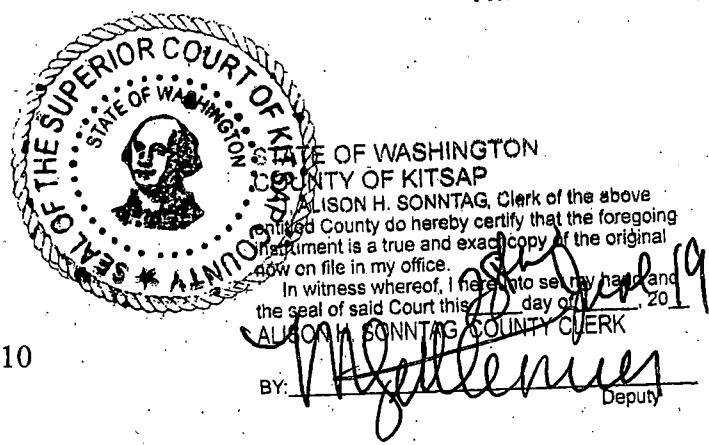 SEAL OF THE SUPERIOR COURT OF KITSAP COUNTY
STATE OF WASHINGTON
STATE OF WASHINGTON
COUNTY OF KITSAP
I, ALISON H. SONNTAG, Clerk of the above
entitled County do hereby certify that the foregoing
instrument is a true and exact copy of the original
now on file in my office.
In witness whereof, I hereunto set my hand and
the seal of said Court this 28th day of June, 2019
ALISON H. SONNTAG, COUNTY CLERK
10
BY:
Deputy